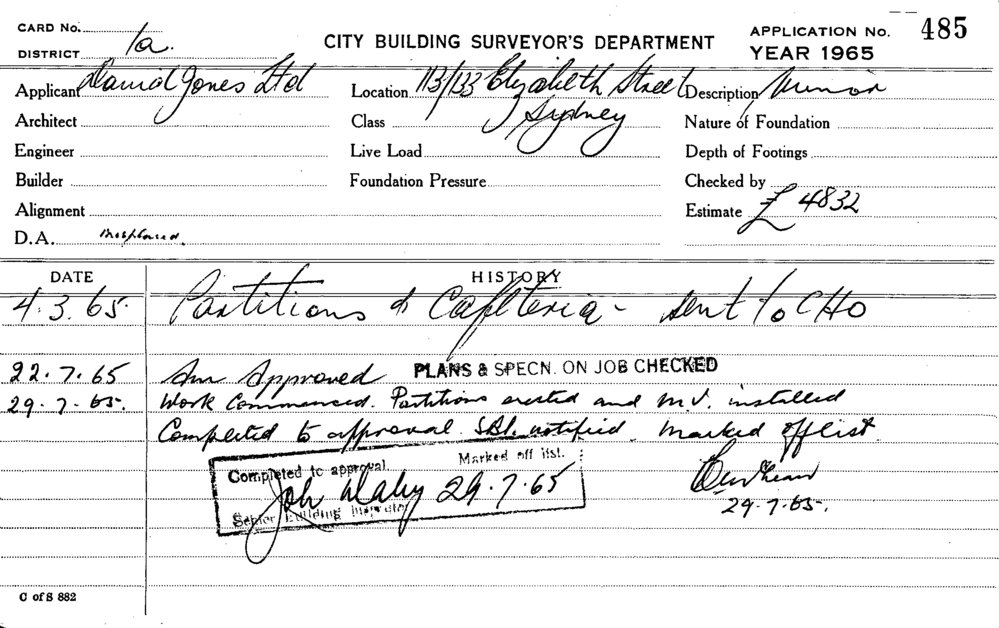 CARD No.
DISTRICT 1a.
CITY BUILDING SURVEYOR'S DEPARTMENT
APPLICATION No. 485
YEAR 1965
Applicant David Jones Ltd
Location 113/133 Elizabeth Street
Sydney
Description Minor
Architect
Class
Nature of Foundation
Engineer
Live Load
Depth of Footings
Builder
Foundation Pressure
Checked by
Alignment
Estimate £ 4832
D.A.
DATE
HISTORY
4.3.65. Partitions & Cafeteria - sent to CHO
22.7.65 Approved PLANS & SPECN. ON JOB CHECKED
29.7.65. Work Commenced. Partitions erected and M.V. installed
Completed to approval. S.B.I. notified. Marked off list.
Completed to approval
Marked off list.
29.7.65
Senior Building Inspector
29.7.65.
C of S 882